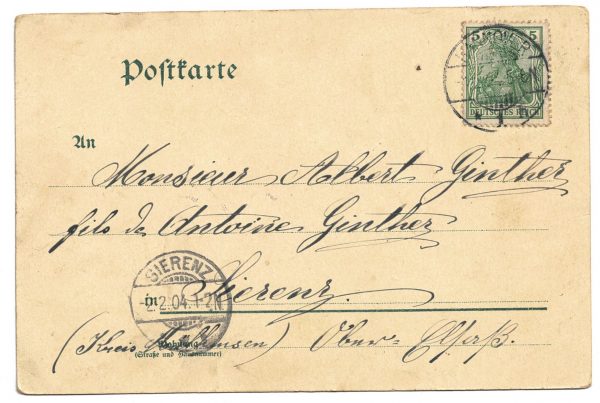 Postkarte
HANNOVER
5 5
DEUTSCHES REICH
An
Monsieur Albert Ginther
fils de Antoine Ginther
SIERENZ
2.2.04.1-2N
in Sierenz.
(Kreis Mülhausen) Ober-Elsaß.
Wohnung
(Straße und Hausnummer)